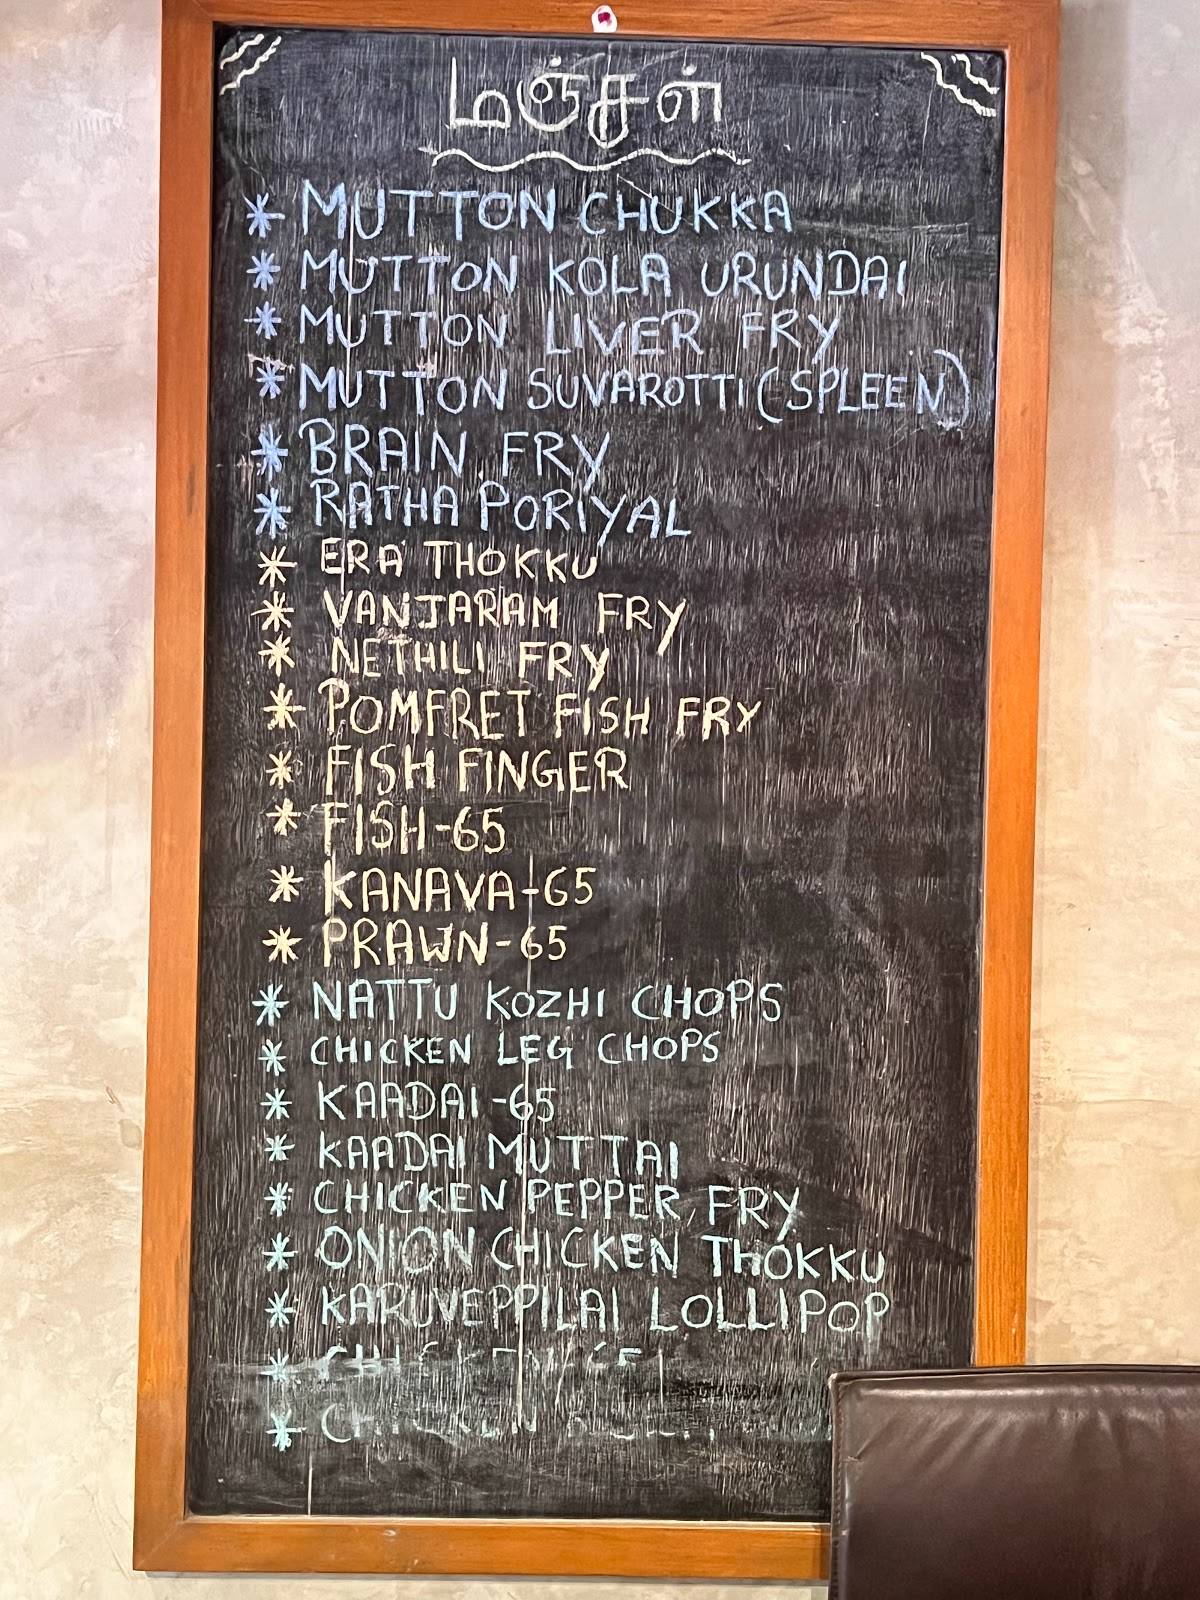 மஞ்சள்
* MUTTON CHUKKA
* MUTTON KOLA URUNDAI
* MUTTON LIVER FRY
* MUTTON SUVAROTTI (SPLEEN)
* BRAIN FRY
* RATHA PORIYAL
* ERA THOKKU
* VANJARAM FRY
* NETHILI FRY
* POMFRET FISH FRY
* FISH FINGER
* FISH-65
* KANAVA-65
* PRAWN-65
* NATTU KOZHI CHOPS
* CHICKEN LEG CHOPS
* KAADAI-65
* KAADAI MUTTAI
* CHICKEN PEPPER FRY
* ONION CHICKEN THOKKU
* KARUVEPPILAI LOLLIPOP
* CHICKEN
* CHICKEN